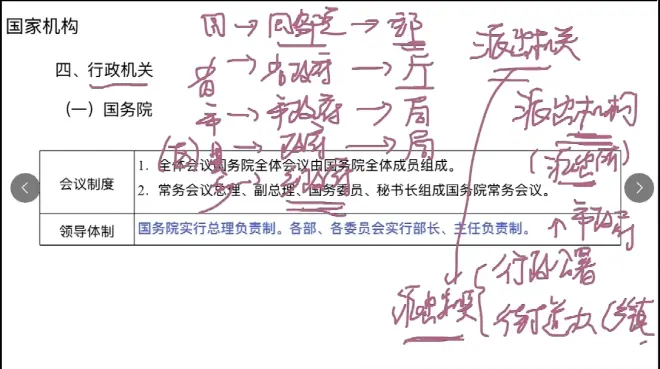 国家机构
国→国务院→部
派出机关
四、行政机关
省→省政府→厅
（一）国务院
市→市政府→局
派出机构
(区)县→政府→局
(派出所)
会议制度
1. 全体会议国务院全体会议由国务院全体成员组成。
2. 常务会议总理、副总理、国务委员、秘书长组成国务院常务会议。
乡→乡政府
领导体制
国务院实行总理负责制。各部、各委员会实行部长、主任负责制。
派出机关
行政公署
街道办(乡镇